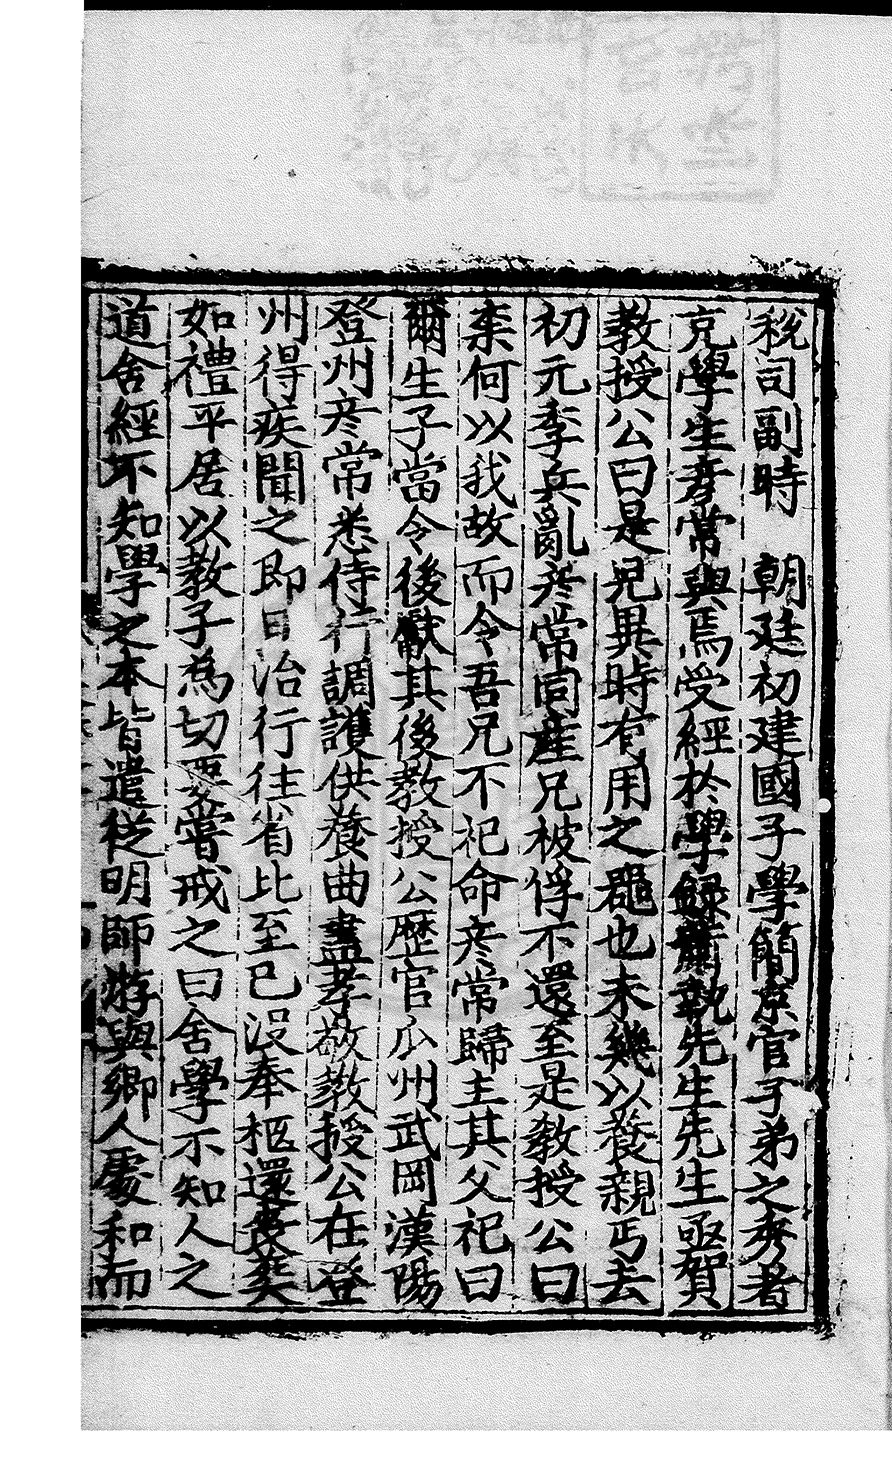 稅司副時　朝廷初建國子學簡京官子弟之秀者
充學生彥常與焉受經於學錄蕭𣂏先生先生亟賀
教授公曰是兒異時有用之器也未幾以養親丐去
初元季兵亂彥常同產兄被俘不還至是教授公曰
柰何以我故而令吾兄不祀命彥常歸主其父祀曰
爾生子當令後猷其後教授公歷官瓜州武岡漢陽
登州彥常悉侍行調護供養曲盡孝敬教授公在登
州得疾聞之即日治行往省比至已沒奉柩還喪葬
如禮平居以教子為切要嘗戒之曰舍學不知人之
道舍經不知學之本皆遣從明師游與鄉人處和而